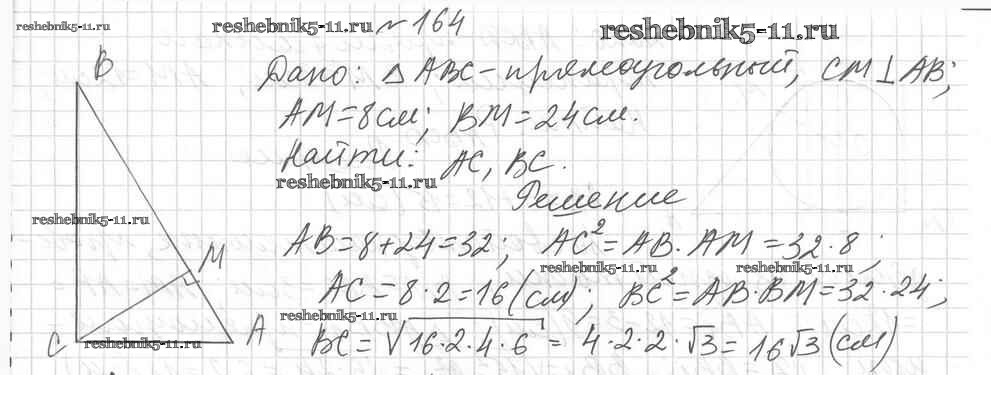 reshebnik5-11.ru reshebnik5-11.ru № 164 reshebnik5-11.ru
B
Дано: △ ABC - прямоугольный, CM ⊥ AB;
AM = 8 см; BM = 24 см.
Найти: AC, BC.
reshebnik5-11.ru
Решение
reshebnik5-11.ru
AB = 8 + 24 = 32; AC² = AB · AM = 32 · 8;
M
reshebnik5-11.ru reshebnik5-11.ru
AC = 8 · 2 = 16 (см); BC² = AB · BM = 32 · 24;
reshebnik5-11.ru
C A
reshebnik5-11.ru
BC = √16·2·4·6 = 4 · 2 · 2 · √3 = 16√3 (см)